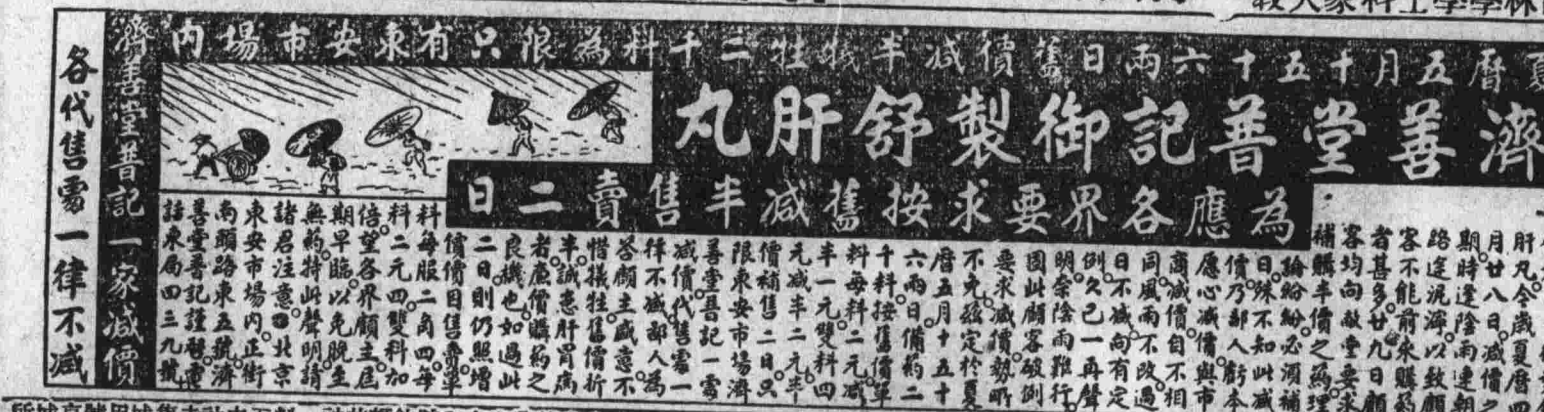 夏曆五月十五十六兩日舊價減半犧牲二千料為限只有東安市場內
濟善堂普記一家減價
濟善堂普記御製舒肝丸
為應各界要求按舊減半售賣二日
肝丸今歲夏曆四
月廿八日減價之
期時逢陰雨連朝
路途泥濘以致顧
客不能前來購葯
者甚多廿九日顧
客均向敝堂要求
補購半價之葯理
論紛紛必須補
日殊不知此減
價乃鄙人虧本
愿心減價與市
商減價自不相
同風雨不改過
日不減向有定
例久已一再聲
明奈陰雨難行
因此顧客破例
要求減價勢所
不免茲定於夏
曆五月十五十
六兩日備葯二
千料按舊價單
料每料二元減
半一元雙料四
元減半二元半
價補售二日只
限東安市場濟
善堂普記一處
減價代售處一
律不減鄙人為
答顧主盛意不
惜犧牲舊價折
半誠患肝胃病
者廉價購葯之
良機也如過此
二日則仍照增
價價目售賣單
料每服二角四每
料二元四雙料加
倍望各界顧主屆
期早臨以免晚至
無葯特此聲明請
諸君注意 北京
東安市場內正街
南頭路東五號濟
善堂普記謹啓電
話東局四三九號
各代售處一律不減